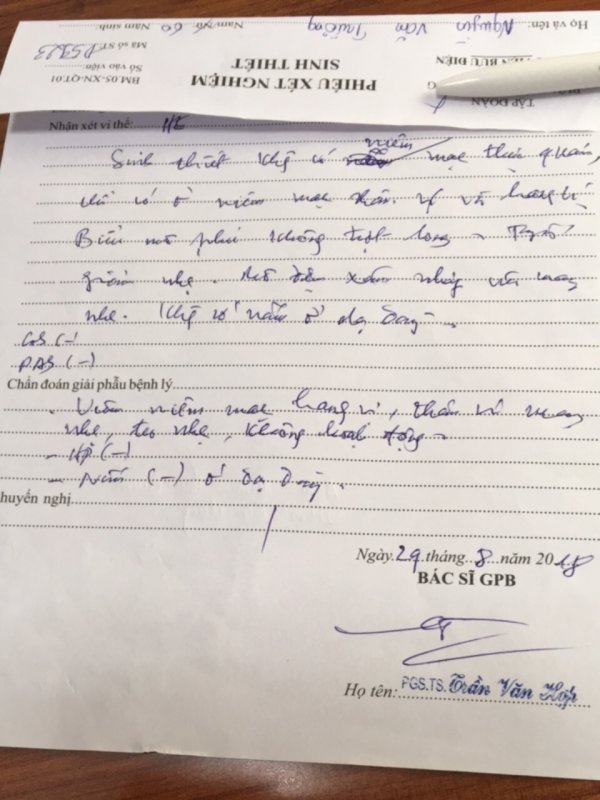 Họ và tên: Nguyễn Văn Trường Nam/Nữ 60 Năm sinh
BM.05-XN-QT.01
Số vào viện
Mã số ST: P5923
PHIẾU XÉT NGHIỆM
SINH THIẾT
TẬP ĐOÀN
BƯU ĐIỆN
Nhận xét vi thể: HE
Sinh thiết không có niêm mạc thực quản,
chỉ có ở niêm mạc thân vị và hang vị
Biểu mô phủ không bong
giảm nhẹ. Mô đệm xâm nhập viêm
nhẹ. Không có nấm ở dạ dày.
GS (-)
PAS (-)
Chẩn đoán giải phẫu bệnh lý
- Viêm niêm mạc hang vị, thân vị
nhẹ, teo nhẹ, không hoạt động
- HP (-)
- Nấm (-) ở dạ dày.
huyến nghị
Ngày 29 tháng 8 năm 2018
BÁC SĨ GPB
Họ tên: PGS.TS. Trần Văn Hợp